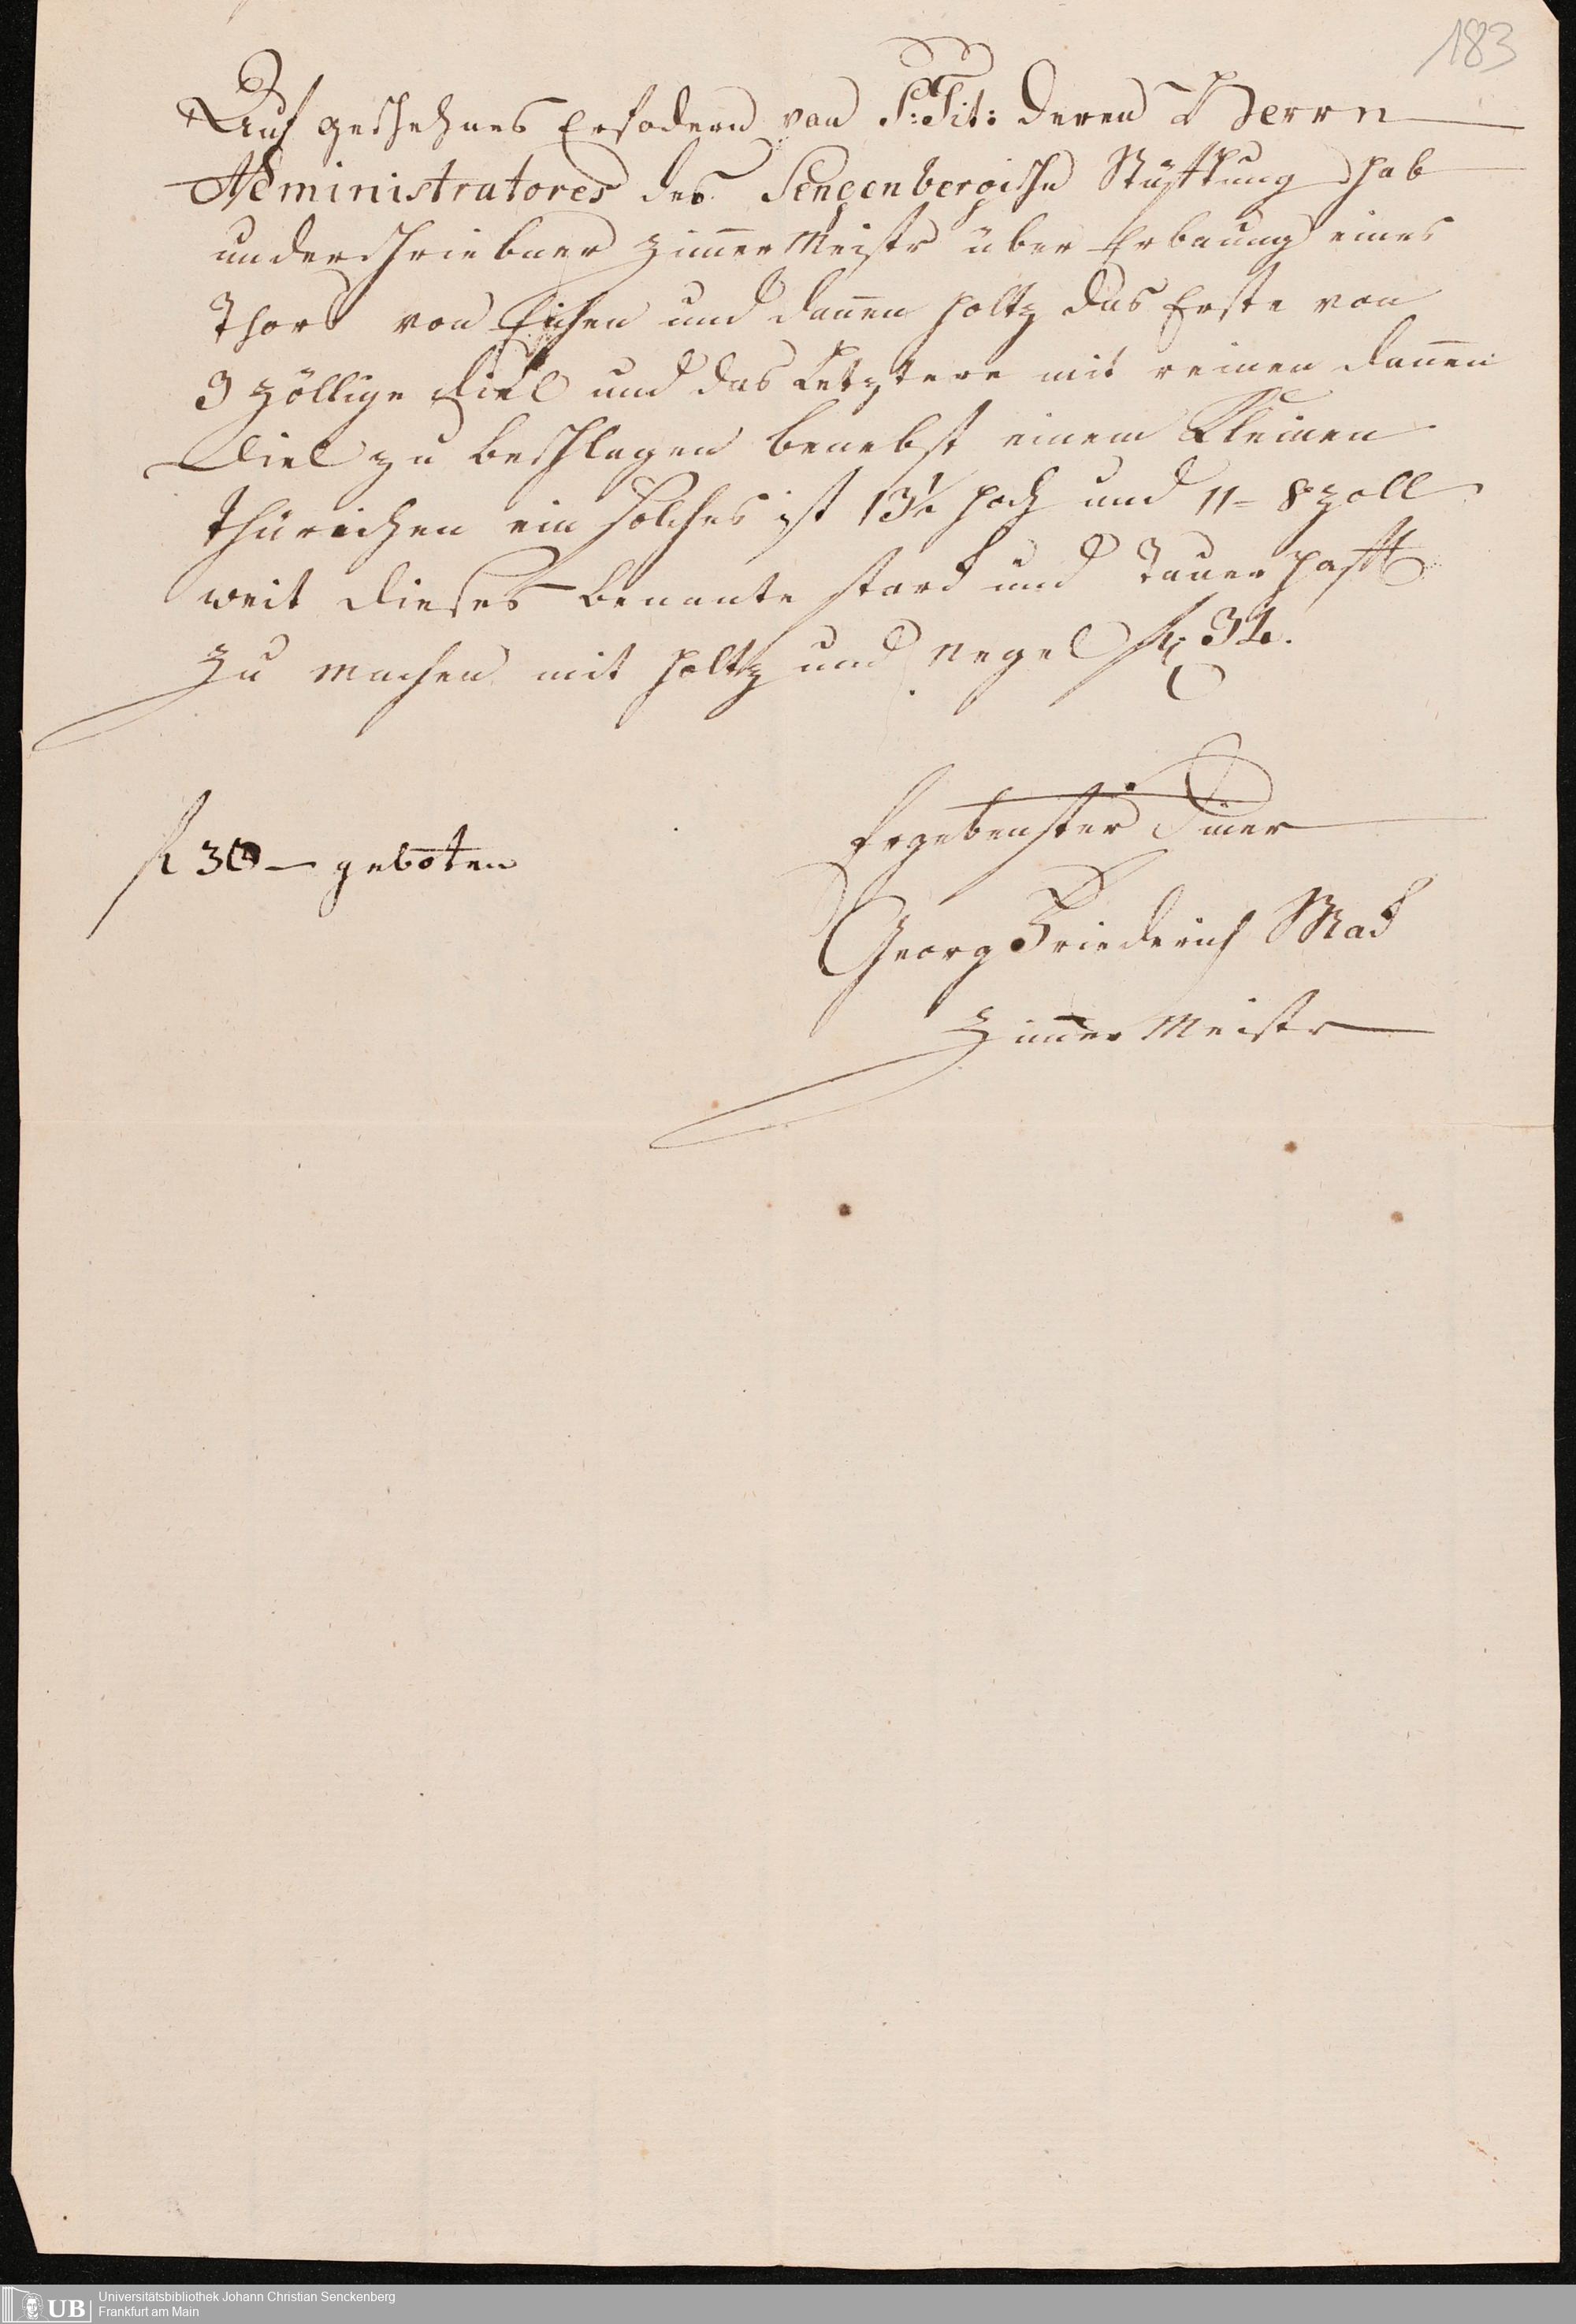 183
Auf geschehnes Erfodern von P: Tit: deren Herrn
Administratores des Sengenbergische Stüfftung hab
underschriebner Zim̄er Meistr über Erbauung eines
Thors von Eichen und dannen Holtz das Erste von
3 zöllige Diel und das Letztere mit reinen dan̄en
Diel zu beschlagen benebst einem Kleinen
Thürichen ein solches ist 13½ hoch und 11 = 8 zoll
weit dieses benante starck und Tauerhafft
zu machen mit Holtz und Negel
f 30 — geboten
Ergebenster Diner
Georg Friederich Mack
Zim̄er Meistr
Universitätsbibliothek Johann Christian Senckenberg
Frankfurt am Main
UB